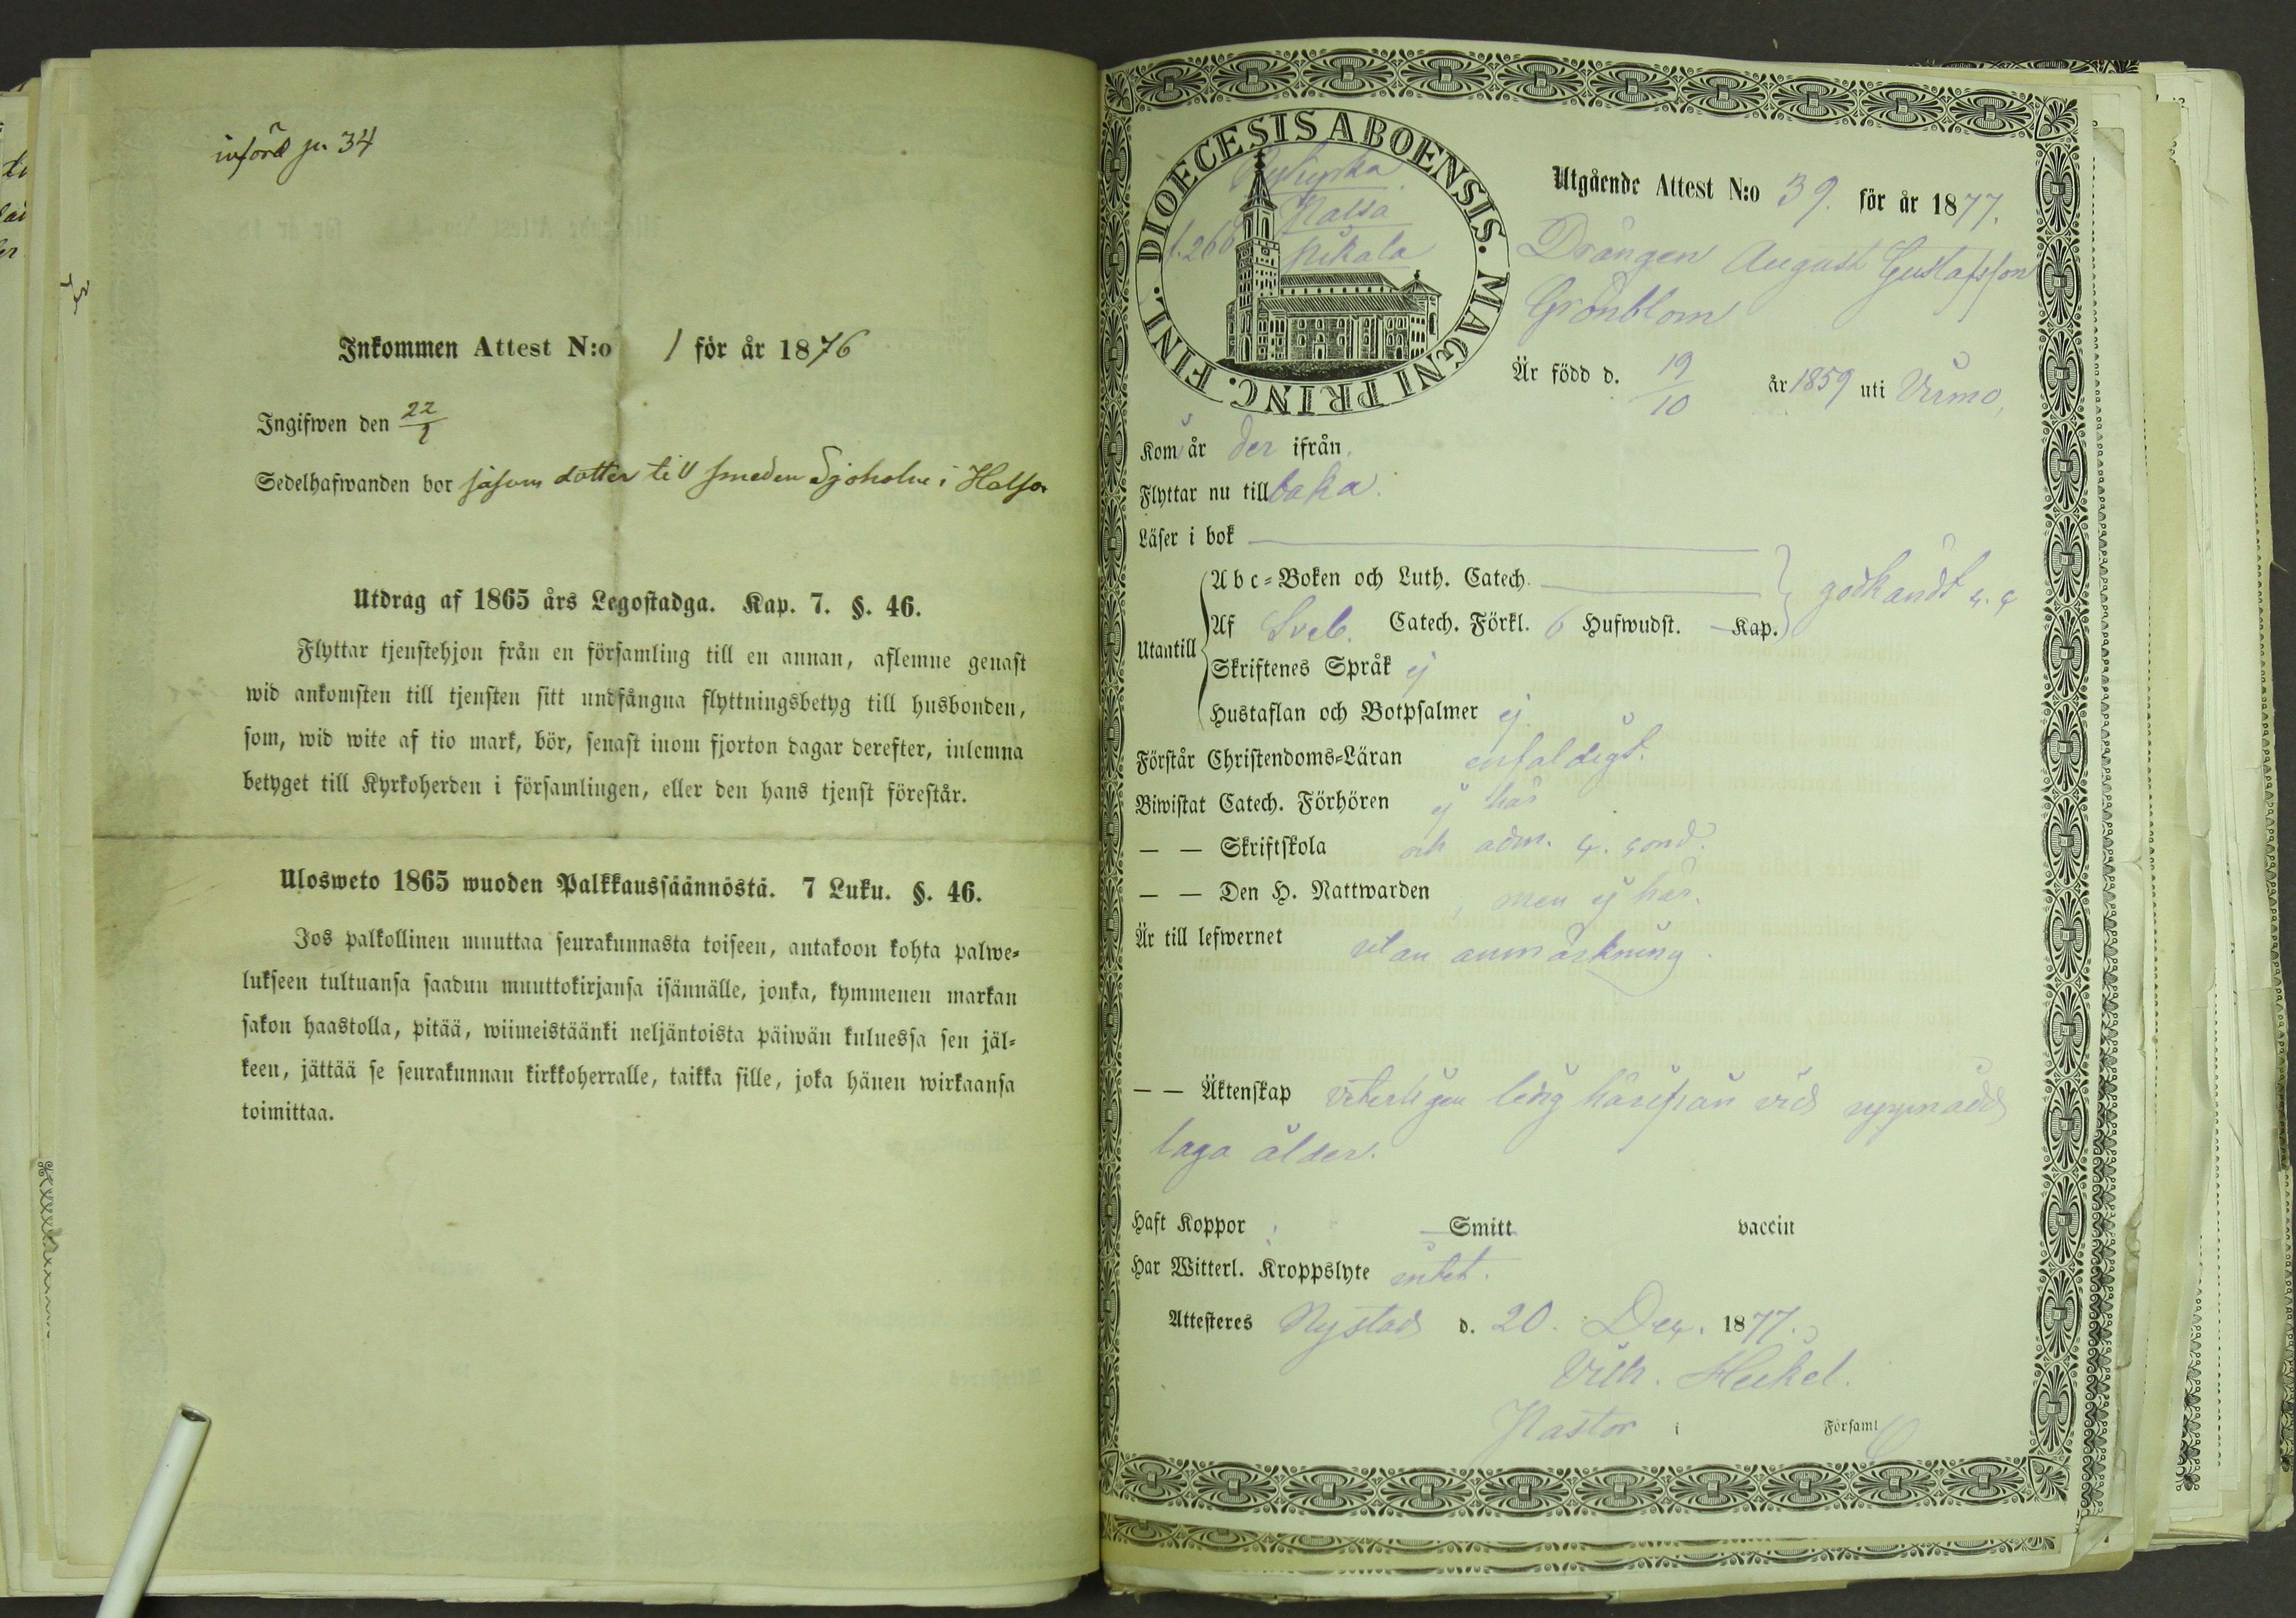 införd p. 34
Inkommen Attest N:o 1 för år 1876
Ingifwen den 22/1
Sedelhafwanden bor såsom dotter till smeden Sjöholm i Halso
Utdrag af 1865 års Legostadga. Kap. 7. §. 46.
Flyttar tjenstehjon från en församling till en annan, aflemne genast
wid ankomsten till tjensten sitt undfångna flyttningsbetyg till husbonden,
som, wid wite af tio mark, bör, senast inom fjorton dagar derefter, inlemna
betyget till Kyrkoherden i församlingen, eller den hans tjenst förestår.
Ulosweto 1865 wuoden Palkkaussäännöstä. 7 Luku. §. 46.
Jos palkollinen muuttaa seurakunnasta toiseen, antakoon kohta palwe=
lukseen tultuansa saadun muuttokirjansa isännälle, jonka, kymmenen markan
sakon haastolla, pitää, wiimeistäänki neljäntoista päiwän kuluessa sen jäl=
keen, jättää se seurakunnan kirkkoherralle, taikka sille, joka hänen wirkaansa
toimittaa.
DIOECESIS ABOENSIS. MAGNI PRINC. FINL.
f. 266
Utgående Attest N:o 39. för år 1877.
Drängen August Gustafsson
Grönblom
Är född d. 19/10 år 1859 uti Virmo,
Kom år der ifrån.
Flyttar nu till baka.
Läser i bok
Abc=Boken och Luth. Catech. godkändt
Utantill
Af Sveb. Catech. Förkl. 6 Hufwudst. Kap.
Skriftenes Språk ej
Hustaflan och Botpsalmer ej
Förstår Christendoms=Läran enfaldigt.
Biwistat Catech. Förhören ej här
— — Skriftskola och adm.
— — Den H. Nattwarden, men ej här.
Är till lefwernet utan anmärkning.
— — Äktenskap veterligen ledig härifrån vid uppnådd
laga ålder.
Haft Koppor Smitt vaccin
Har Witterl. Kroppslyte intet.
Attesteres Nystad d. 20. Dec. 1877.
Vilh. Heikel.
Pastor i Församl